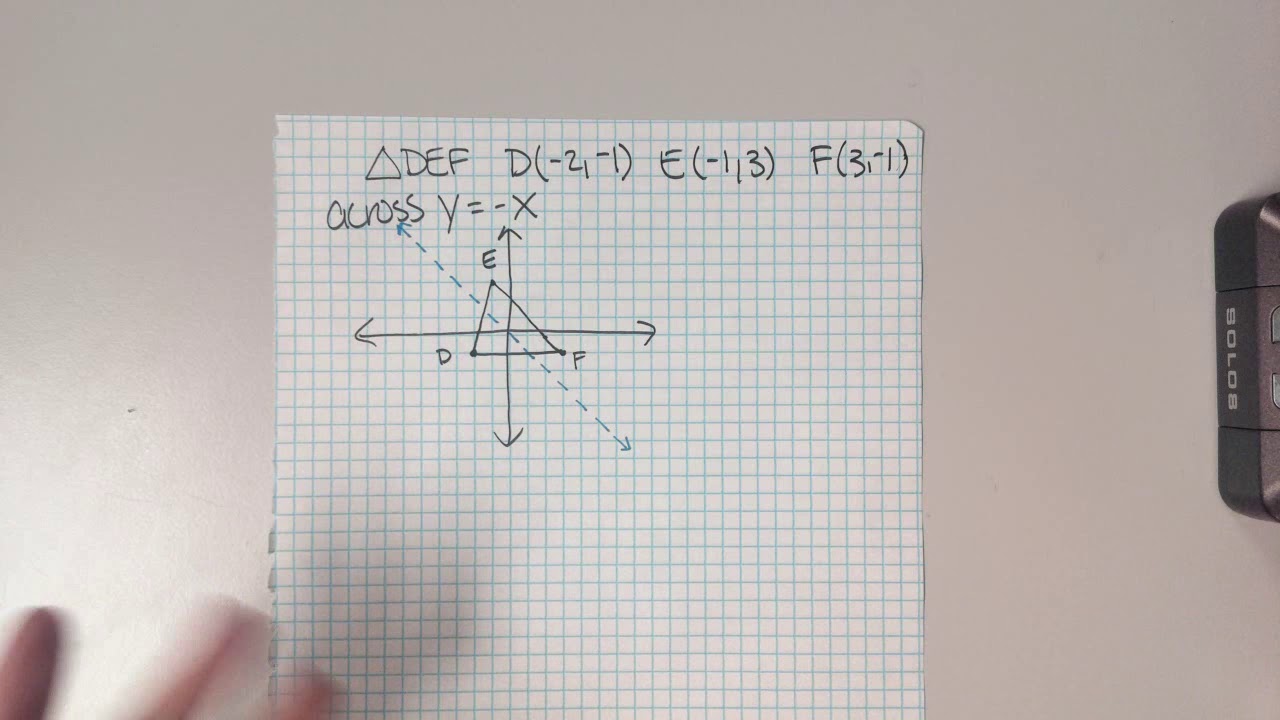 △DEF D(-2,-1) E(-1,3) F(3,-1)
across y=-x
E
D
F
SOLO8